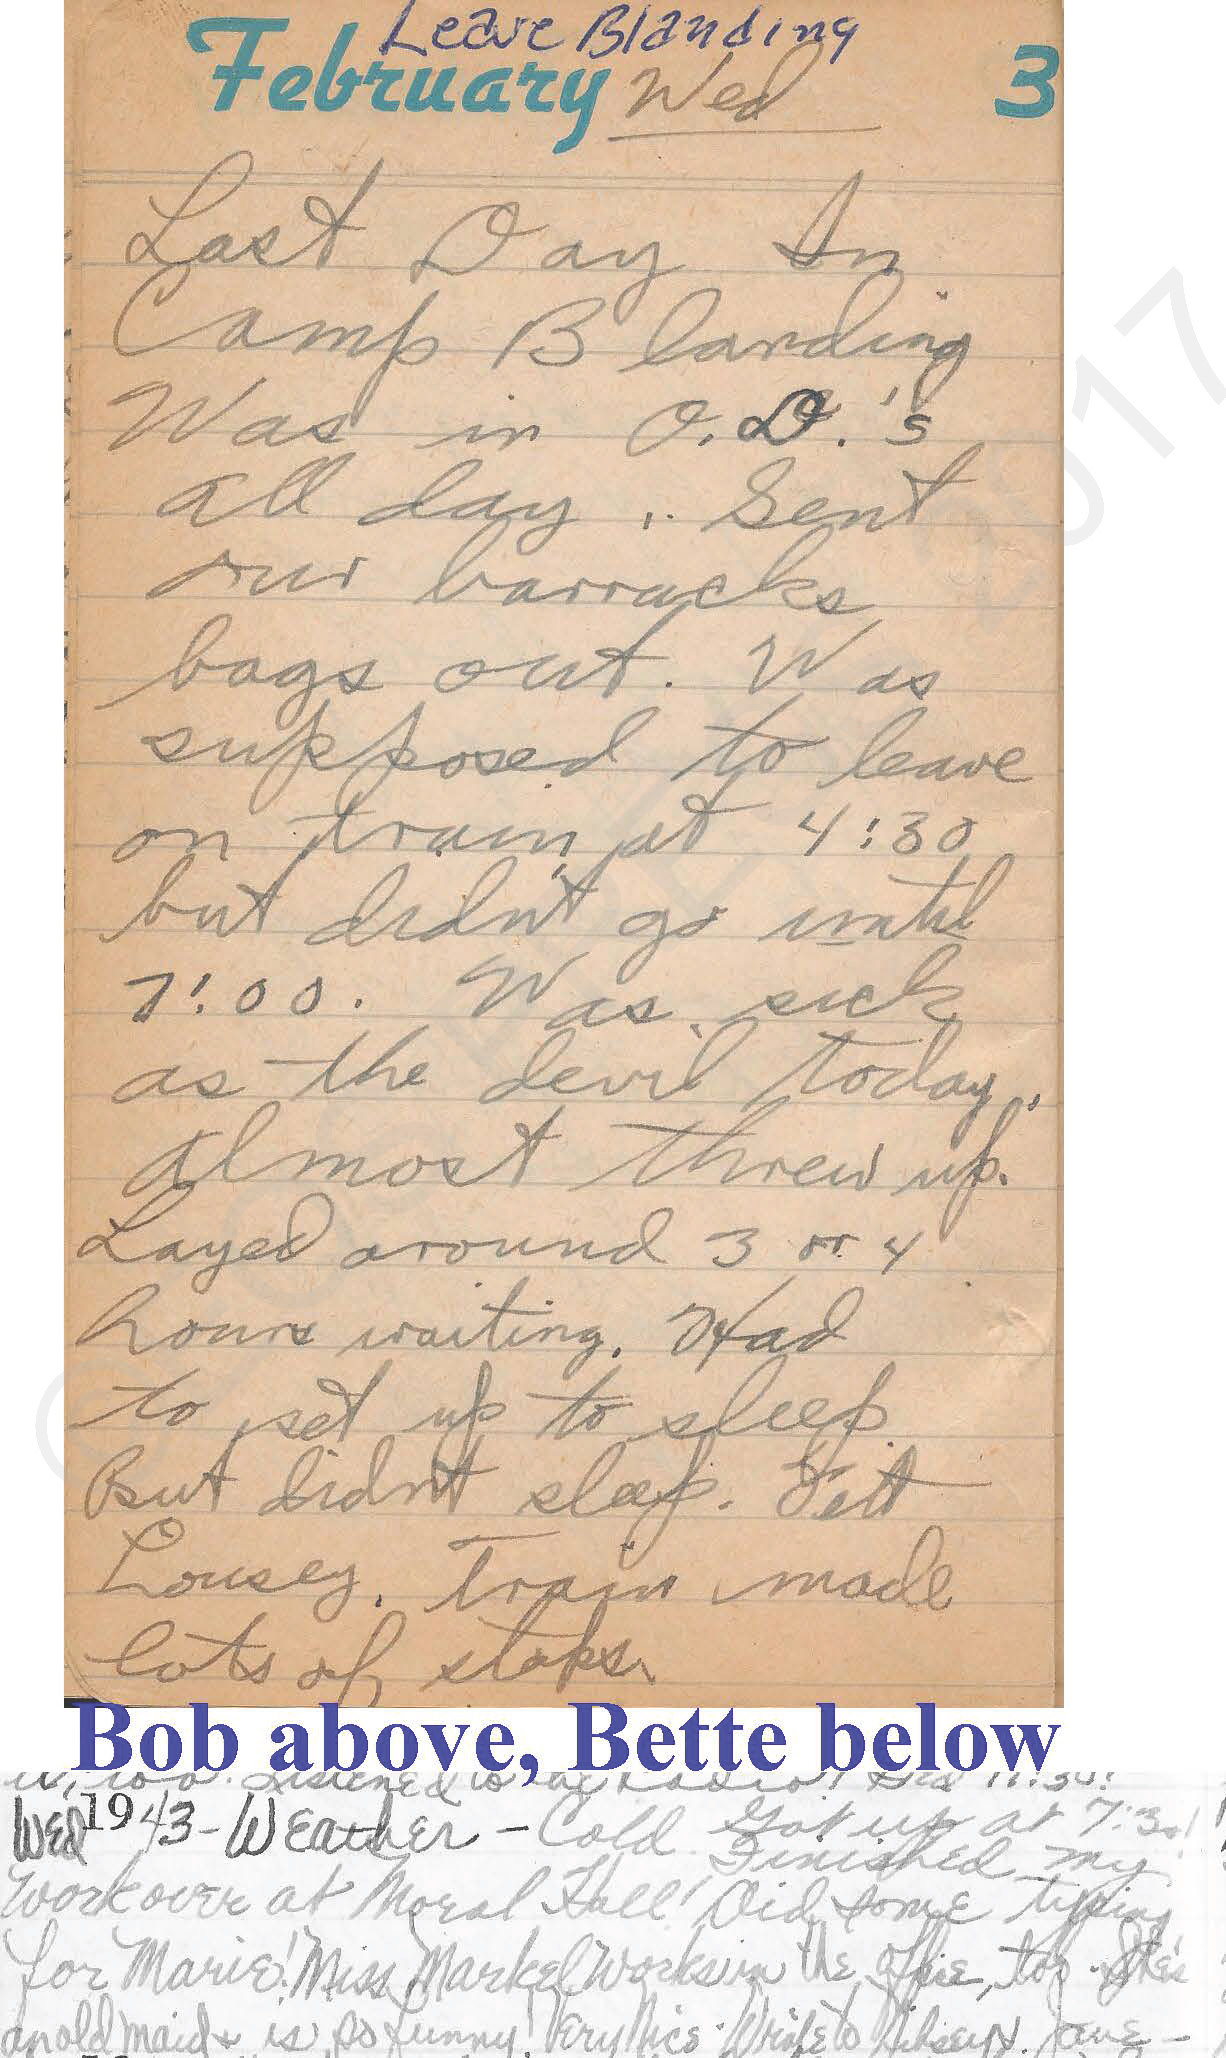 Leave Blanding
February Wed 3
Last Day In
Camp Blanding
Was in O.D.'s
all day. Sent
our barracks
bags out. Was
supposed to leave
on train at 4:30
but didn't go until
7:00. Was sick
as the devil today.
almost threw up.
Layed around 3 or 4
hours waiting. Had
to set up to sleep
But didn't sleep. Felt
Lousey. Train made
lots of stops.
Bob above, Bette below
too. Listened to the radio! Bed 11:30!
Wed 1943 - Weather - Cold. Got up at 7:30!
Finished my
work over at Moral Hall! Did some typing
for Marie! Miss Markel works in the office, too. She's
an old maid & is so funny! Very Nice. Wrote to Jane -
2017